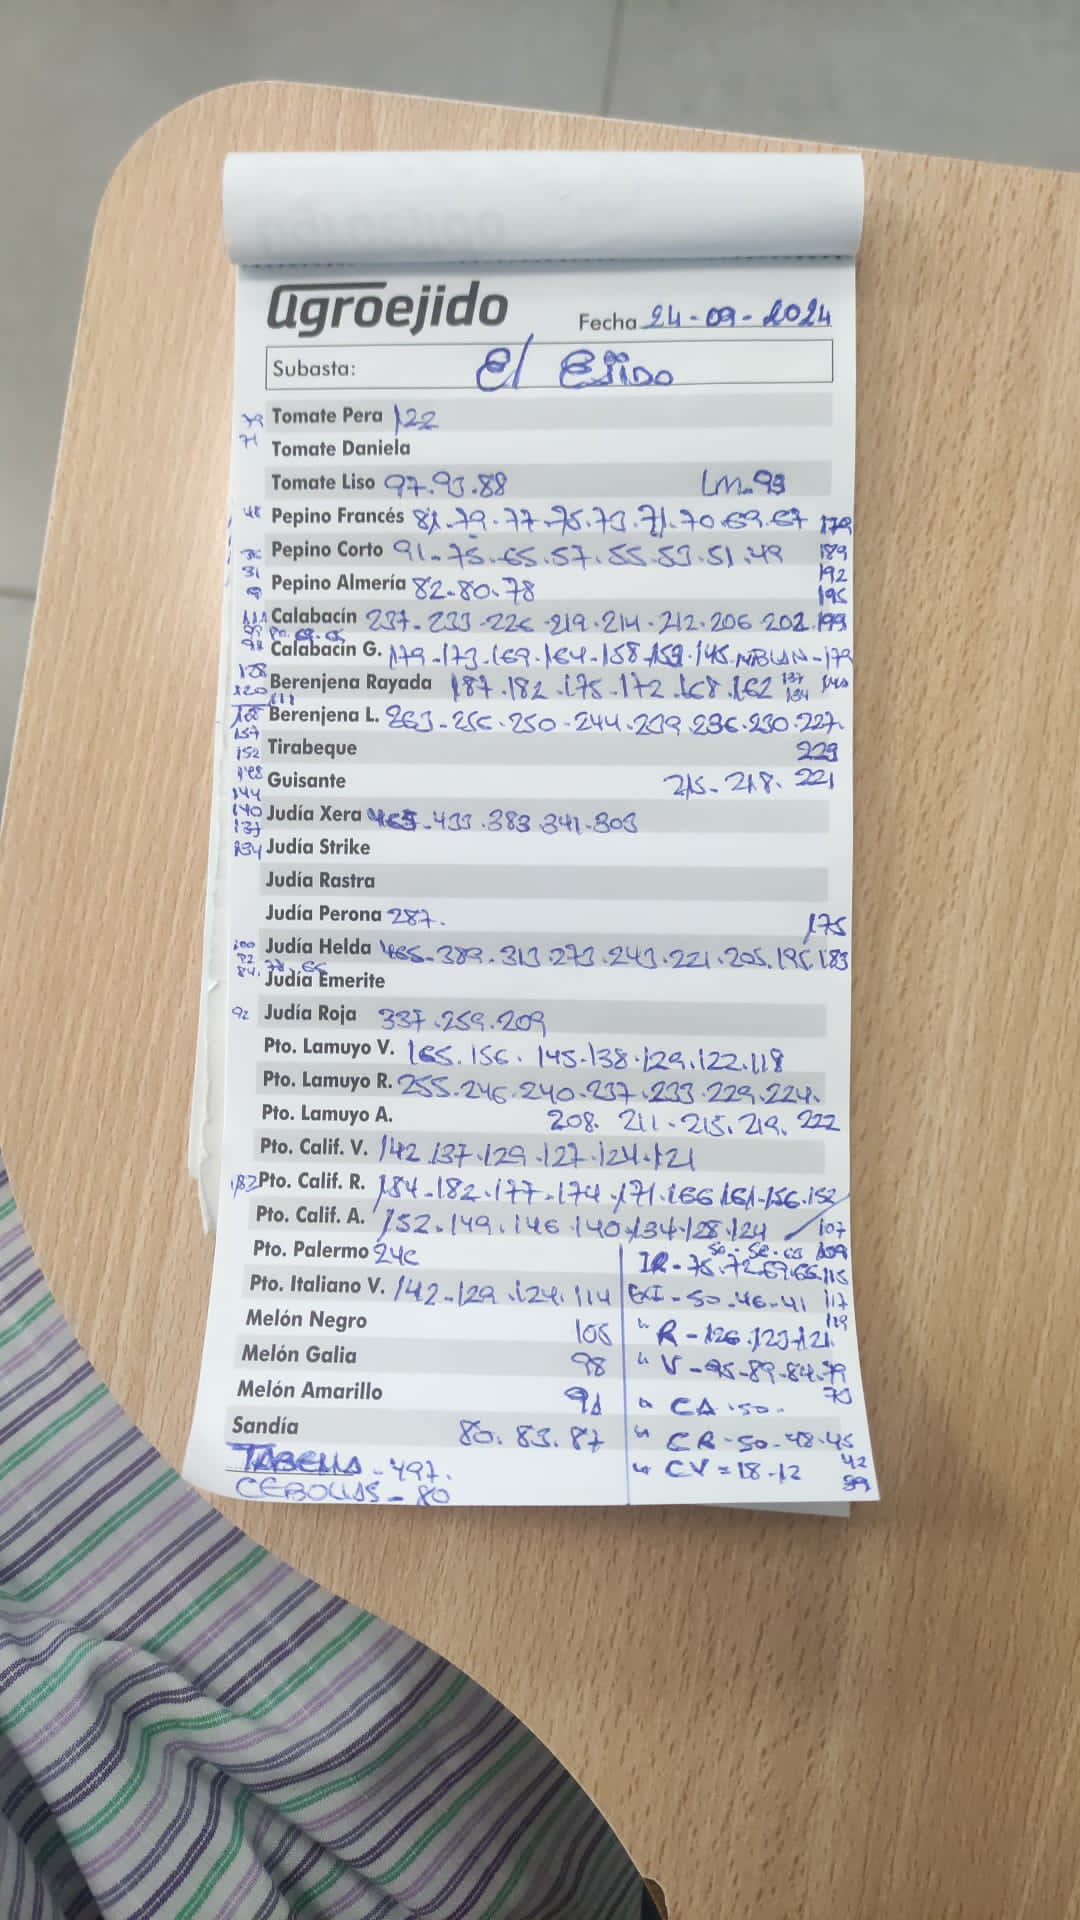 agroejido
Fecha 24-09-2024
Subasta: El Ejido
Tomate Pera 122
Tomate Daniela
71
Tomate Liso 97.93.88 LM-93
48 Pepino Francés 81.79.77-75.73.71.70.69.67 179
Pepino Corto 91-75.65.57.55.53.51.49 189
31 Pepino Almería 82.80.78 192
195
Calabacín 237.233-226-219.214.212.206 202.199
Calabacín G. 179-173.169.164-158-159.145. MBLAN-179
128
120 Berenjena Rayada 187.182.175-172.168.162 137 134 140
111
Berenjena L. 263-256.250-244.239.236.230.227.
157
152 Tirabeque 223
148 Guisante 215-218. 221
144
140 Judía Xera 465-433.383.341.303
137
134 Judía Strike
Judía Rastra
Judía Perona 287. 175
100 Judía Helda 465-389.313.273.243.221.205.195.183
92
84.78.66
Judía Emerite
92 Judía Roja 337.259.209
Pto. Lamuyo V. 165.156.145.138.129.122.118
Pto. Lamuyo R. 255.246.240.237.233.229.224.
Pto. Lamuyo A. 208. 211-215.219. 222
Pto. Calif. V. 142.137.129.127.124.121
Pto. Calif. R. 184-182.177-174.171.166 161-156.152
Pto. Calif. A. 152.149.146.140.134.128.124 107
109
Pto. Palermo 246 IR-75.72.69.66.115
Pto. Italiano V. 142-129.124.114 EXI-50.46-41 117
119
Melón Negro 105 " R-126.123.121.
Melón Galia 98 " V-95-89-84.79
73
Melón Amarillo 91 " CA.50.
Sandía 80. 83.87 " CR-50-48.45
42
TABELLA-497. " CV=18-12
39
CEBOLLAS-80